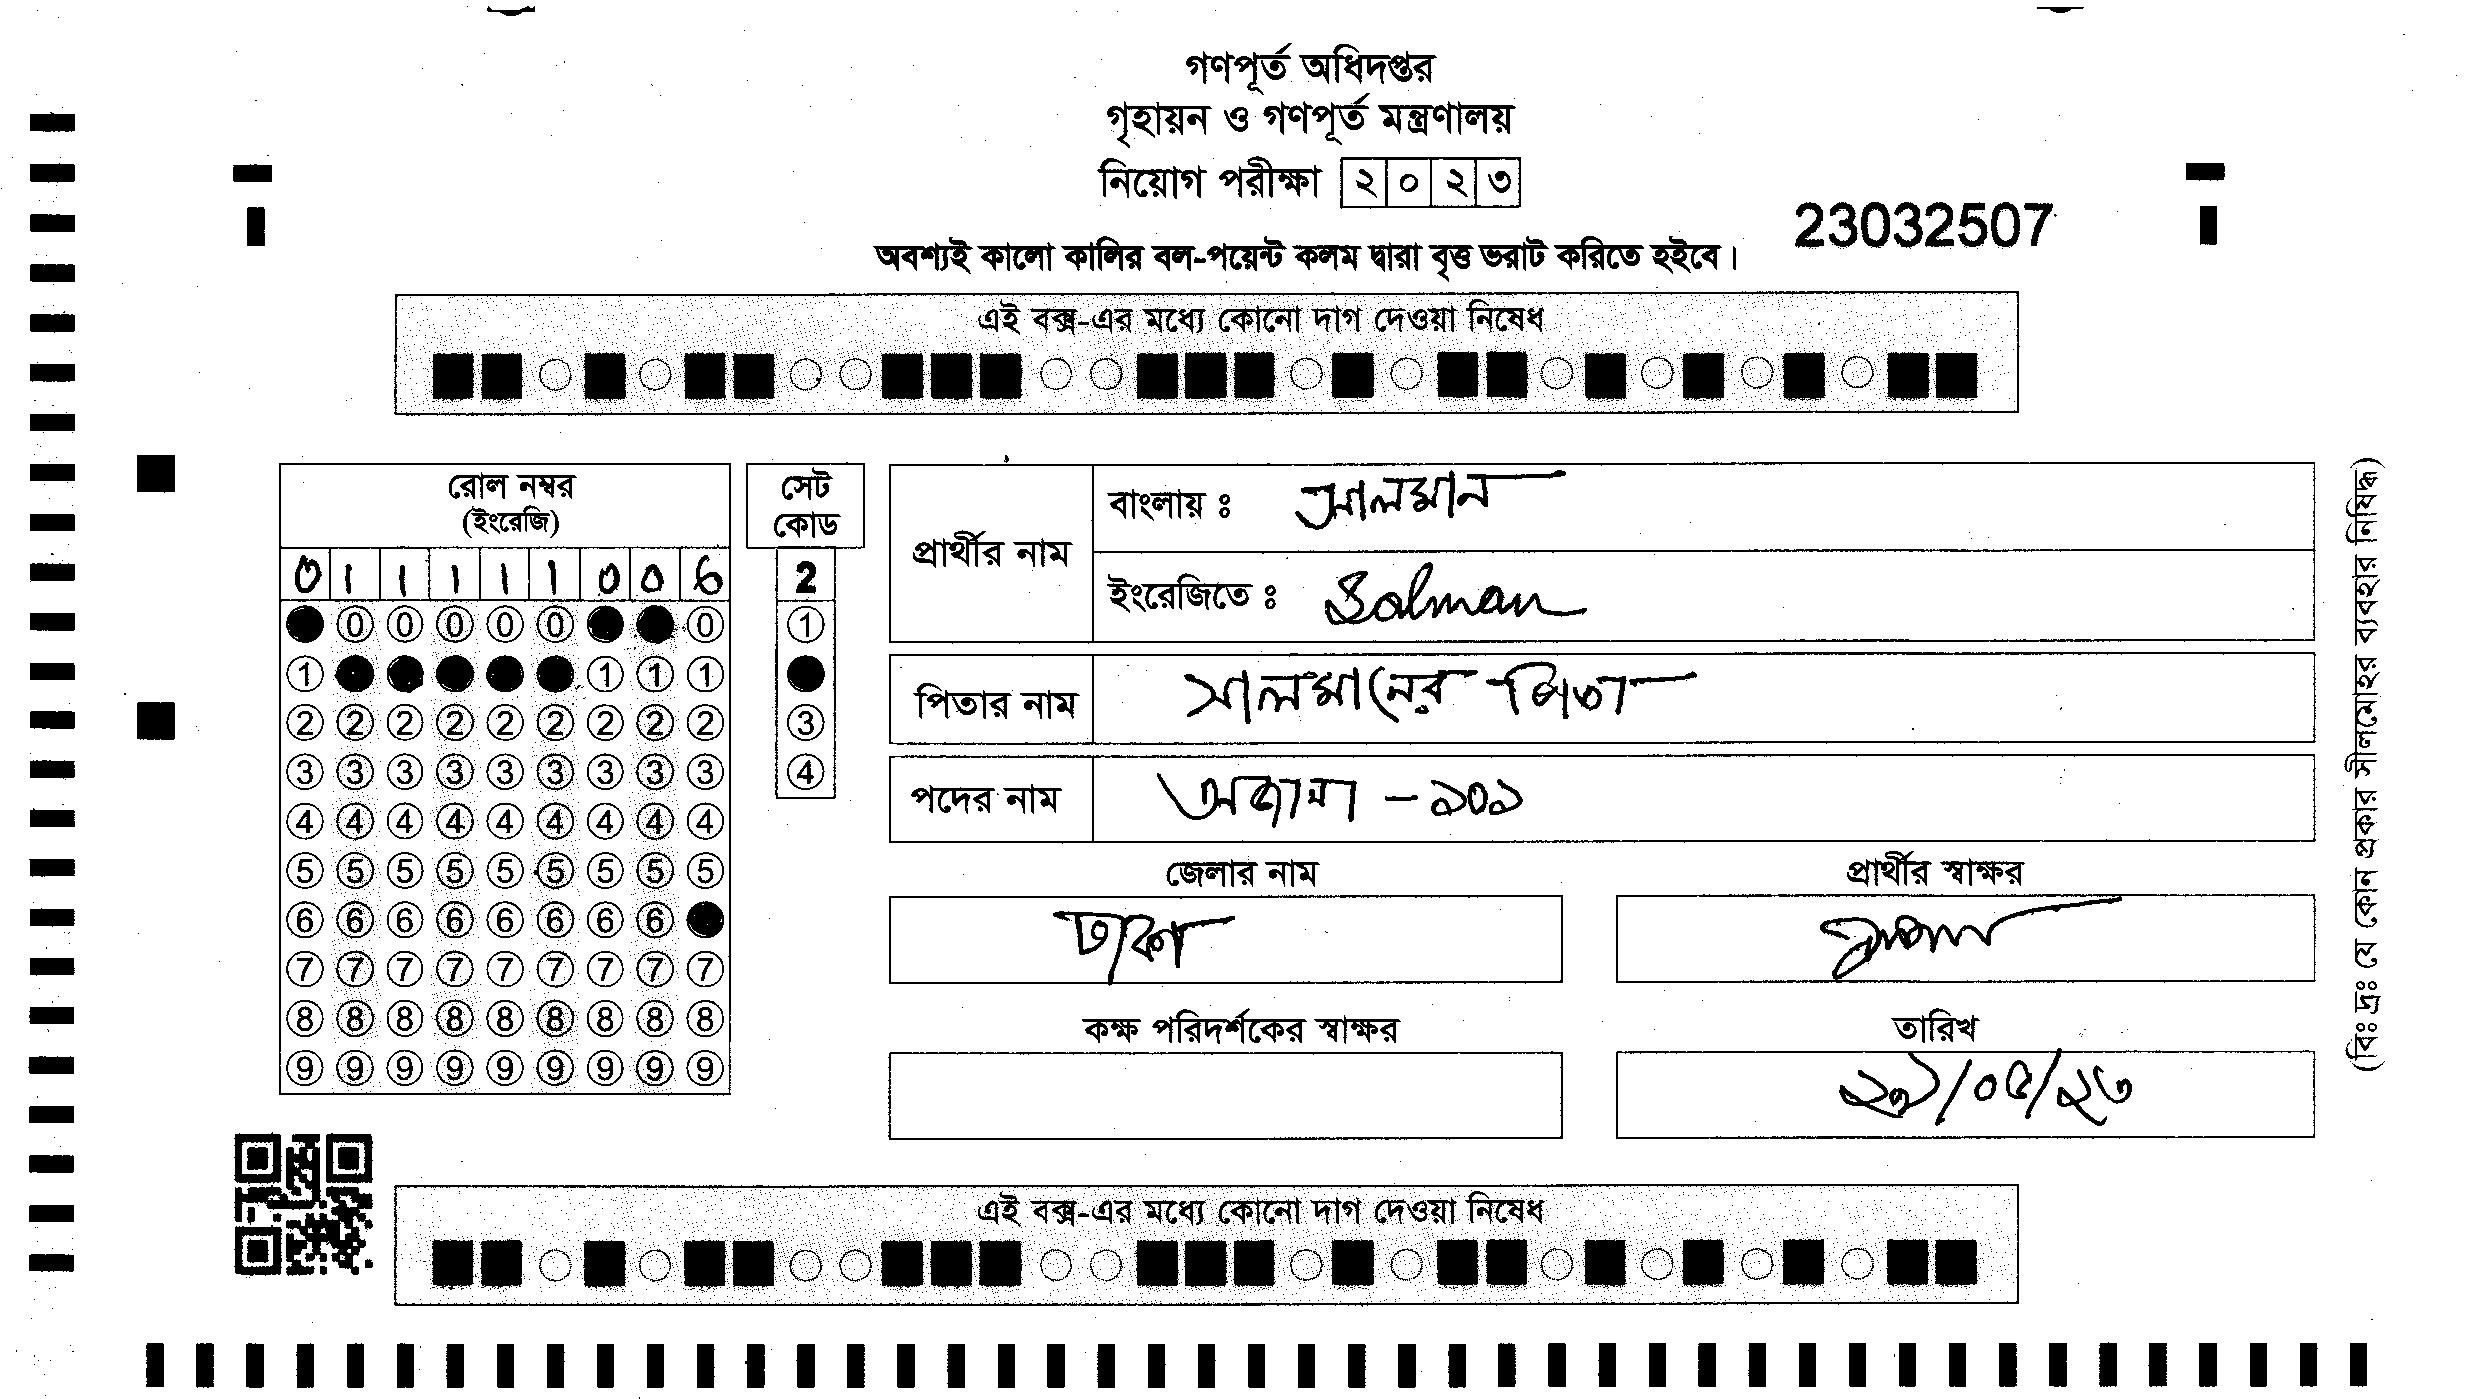 গণপূর্ত অধিদপ্তর
গৃহায়ন ও গণপূর্ত মন্ত্রণালয়
নিয়োগ পরীক্ষা ২০২৩
23032507
অবশ্যই কালো কালির বল-পয়েন্ট কলম দ্বারা বৃত্ত ভরাট করিতে হইবে।
এই বক্স-এর মধ্যে কোনো দাগ দেওয়া নিষেধ
রোল নম্বর
(ইংরেজি)
0 1 1 1 1 1 0 0 6
0 0 0 0 0 0
1 1 1 1
2 2 2 2 2 2 2 2 2
3 3 3 3 3 3 3 3 3
4 4 4 4 4 4 4 4 4
5 5 5 5 5 5 5 5 5
6 6 6 6 6 6 6 6
7 7 7 7 7 7 7 7 7
8 8 8 8 8 8 8 8 8
9 9 9 9 9 9 9 9 9
সেট
কোড
2
1
3
4
প্রার্থীর নাম
বাংলায় ঃ সালমান
ইংরেজিতে ঃ Salman
পিতার নাম সালমানের পিতা
পদের নাম অজানা - ১০১
জেলার নাম
ঢাকা
প্রার্থীর স্বাক্ষর
কক্ষ পরিদর্শকের স্বাক্ষর
তারিখ
/০৫/২৩
(বিঃ দ্রঃ যে কোন প্রকার সীলমোহর ব্যবহার নিষিদ্ধ)
এই বক্স-এর মধ্যে কোনো দাগ দেওয়া নিষেধ